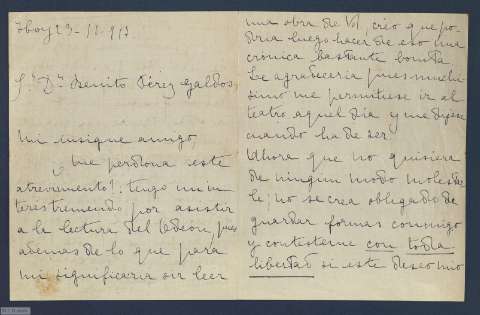 hoy 23-11-917
Sr Dn Benito Pérez Galdós
Mi insigne amigo,
¡me perdona este
atrevimiento!; tengo un in
terés tremendo por asistir
a la lectura del Odeón, pues
además de lo que para
mi significaria oir leer
una obra de Vd, creo que po-
dria luego hacer de eso una
crónica bastante bonita
Le agradeceria pues muchi-
simo me permitiese ir al
teatro aquel dia y me dijese
cuando ha de ser.
Ahora que no quisiera
de ningun modo molestar
le; no se crea obligado de
guardar formas conmigo
y contésteme con toda
libertad si este deseo mio